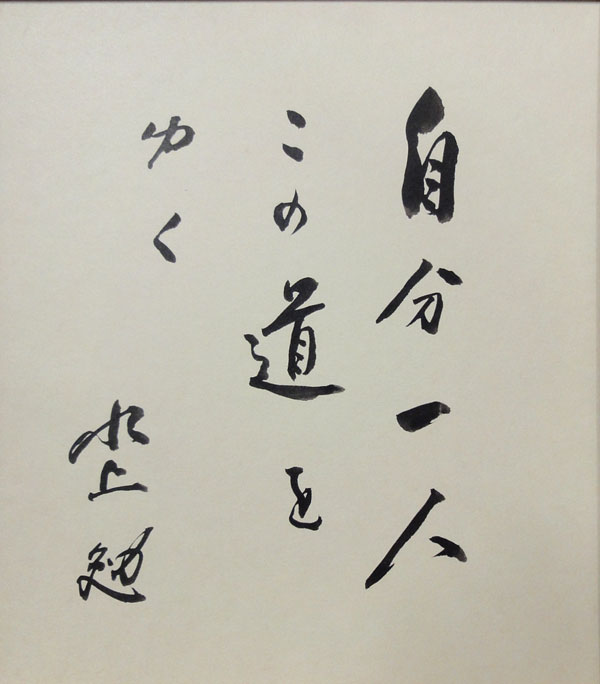 自分一人
この道を
ゆく
水上勉